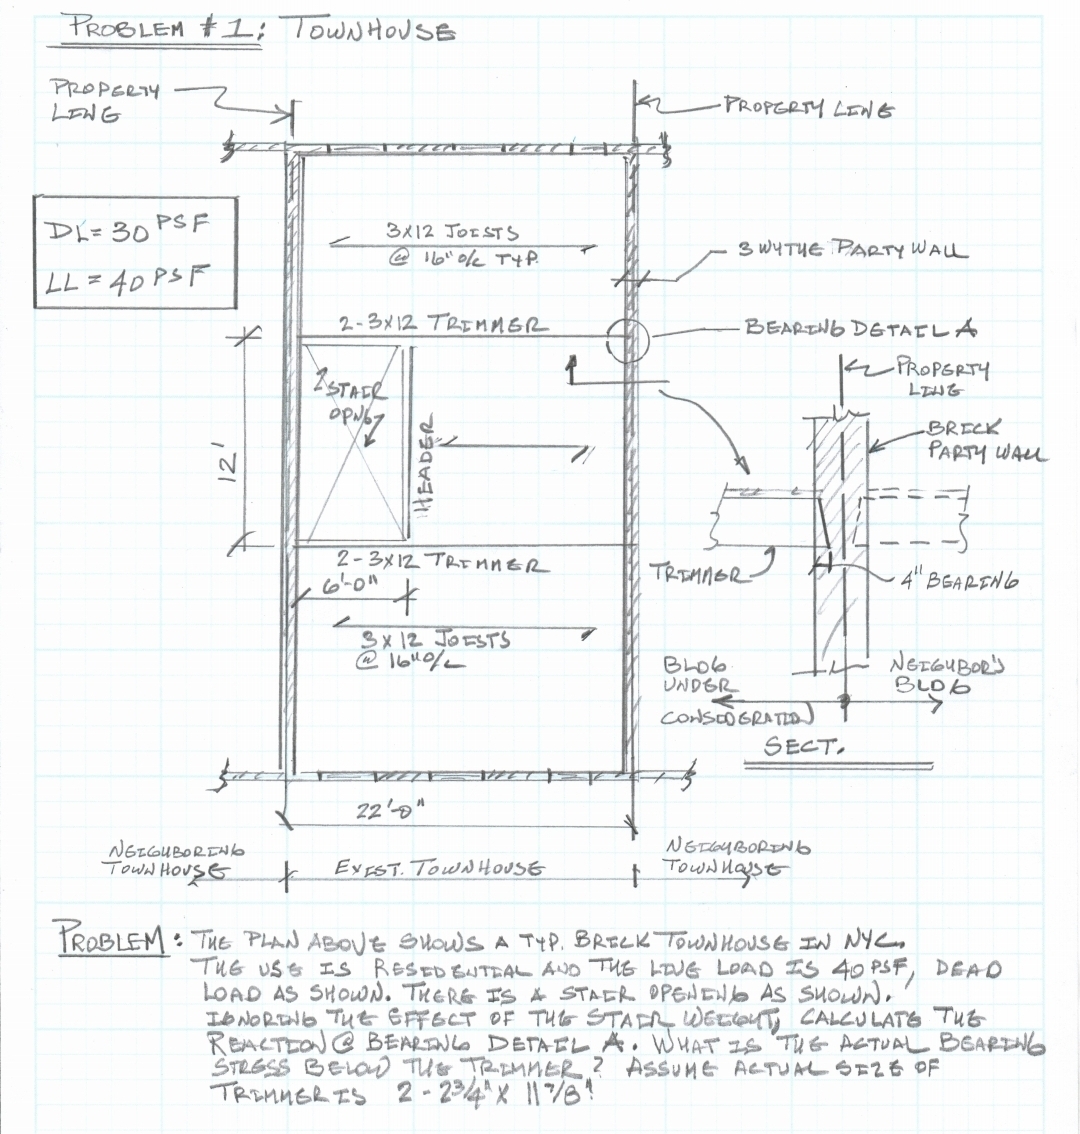 PROBLEM #1: TOWNHOUSE
PROPERTY
LINE
PROPERTY LINE
DL = 30 PSF
LL = 40 PSF
3X12 JOISTS
@ 16" O/C TYP.
3 WYTHE PARTY WALL
2-3X12 TRIMMER
BEARING DETAIL A
PROPERTY
LINE
STAIR
OPN'G
HEADER
12'
BRICK
PARTY WALL
2-3X12 TRIMMER
TRIMMER
4" BEARING
6'-0"
3 X 12 JOISTS
@ 16" O/C
BLDG
UNDER
CONSIDERATION
NEIGHBOR'S
BLDG
SECT.
22'-0"
NEIGHBORING
TOWNHOUSE
EXIST. TOWNHOUSE
NEIGHBORING
TOWNHOUSE
PROBLEM: THE PLAN ABOVE SHOWS A TYP. BRICK TOWNHOUSE IN NYC.
THE USE IS RESIDENTIAL AND THE LIVE LOAD IS 40 PSF, DEAD
LOAD AS SHOWN. THERE IS A STAIR OPENING AS SHOWN.
IGNORING THE EFFECT OF THE STAIR WEIGHT, CALCULATE THE
REACTION @ BEARING DETAIL A. WHAT IS THE ACTUAL BEARING
STRESS BELOW THE TRIMMER? ASSUME ACTUAL SIZE OF
TRIMMER IS 2 - 2 3/4" X 11 7/8"